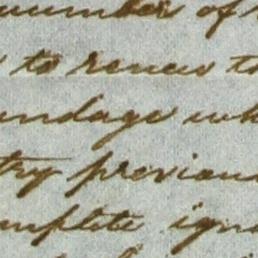 number of
to renew th
ndage wh
try previous
mplete igno